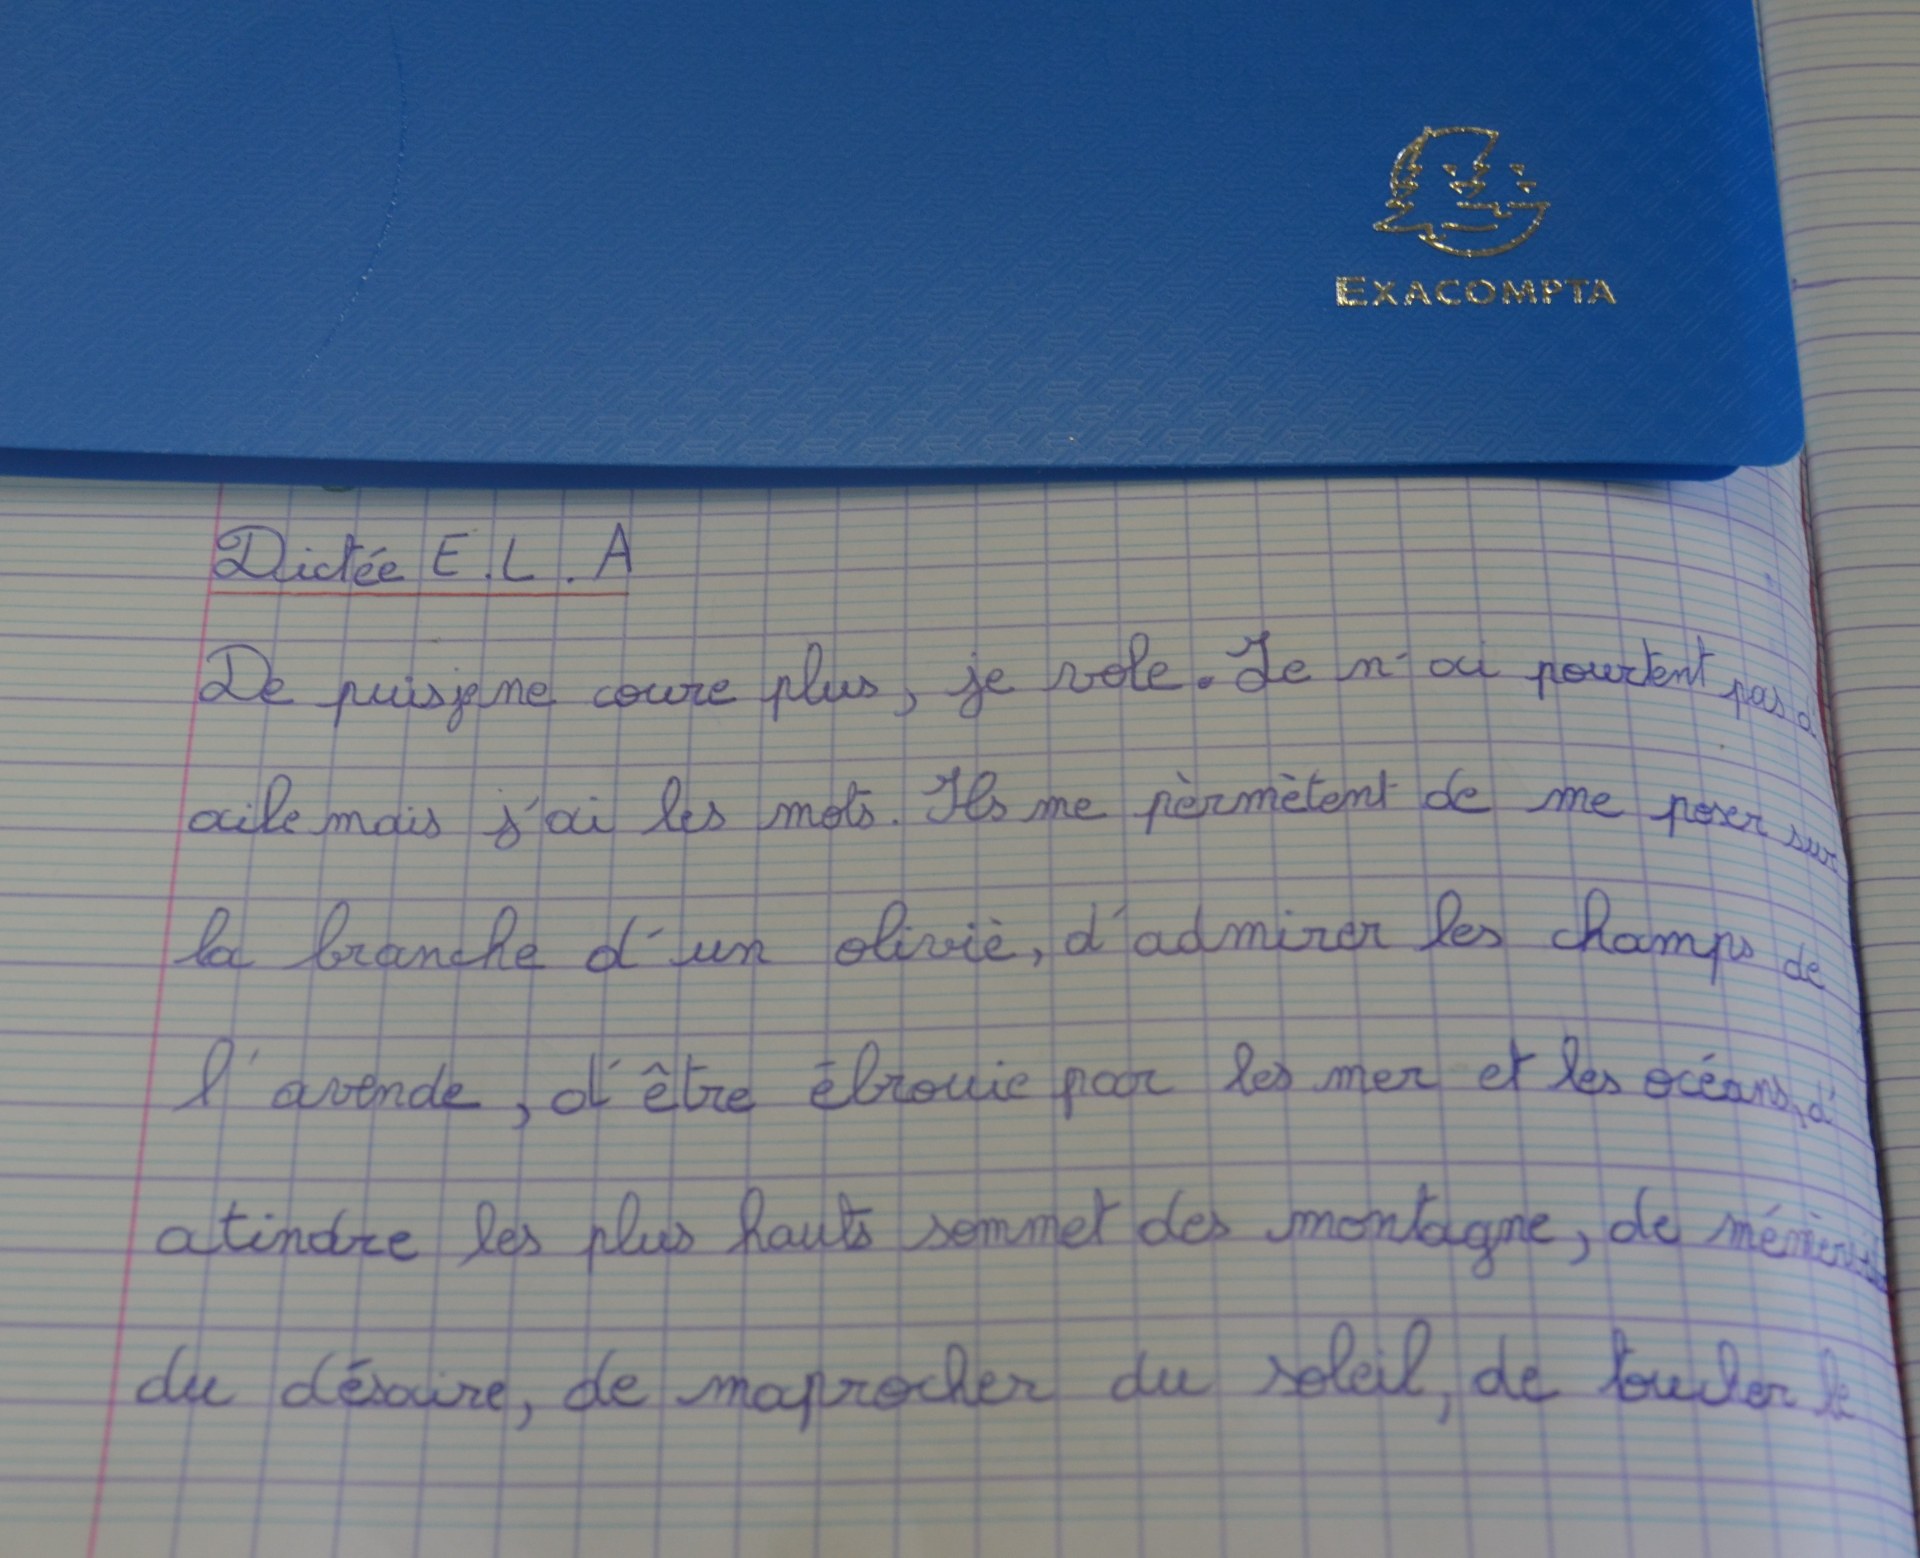 EXACOMPTA
Dictée E.L.A
De puisje ne coure plus, je vole. Je n'ai pourtent pas d'
aile mais j'ai les mots. Ils me pèrmètent de me poser sur
la branche d'un olivié, d'admirer les champs de
l'avende, d'être ébrouie par les mer et les océans, d'
atindre les plus hauts sommet des montagne, de
du désaire, de maprocher du soleil, de toucher le